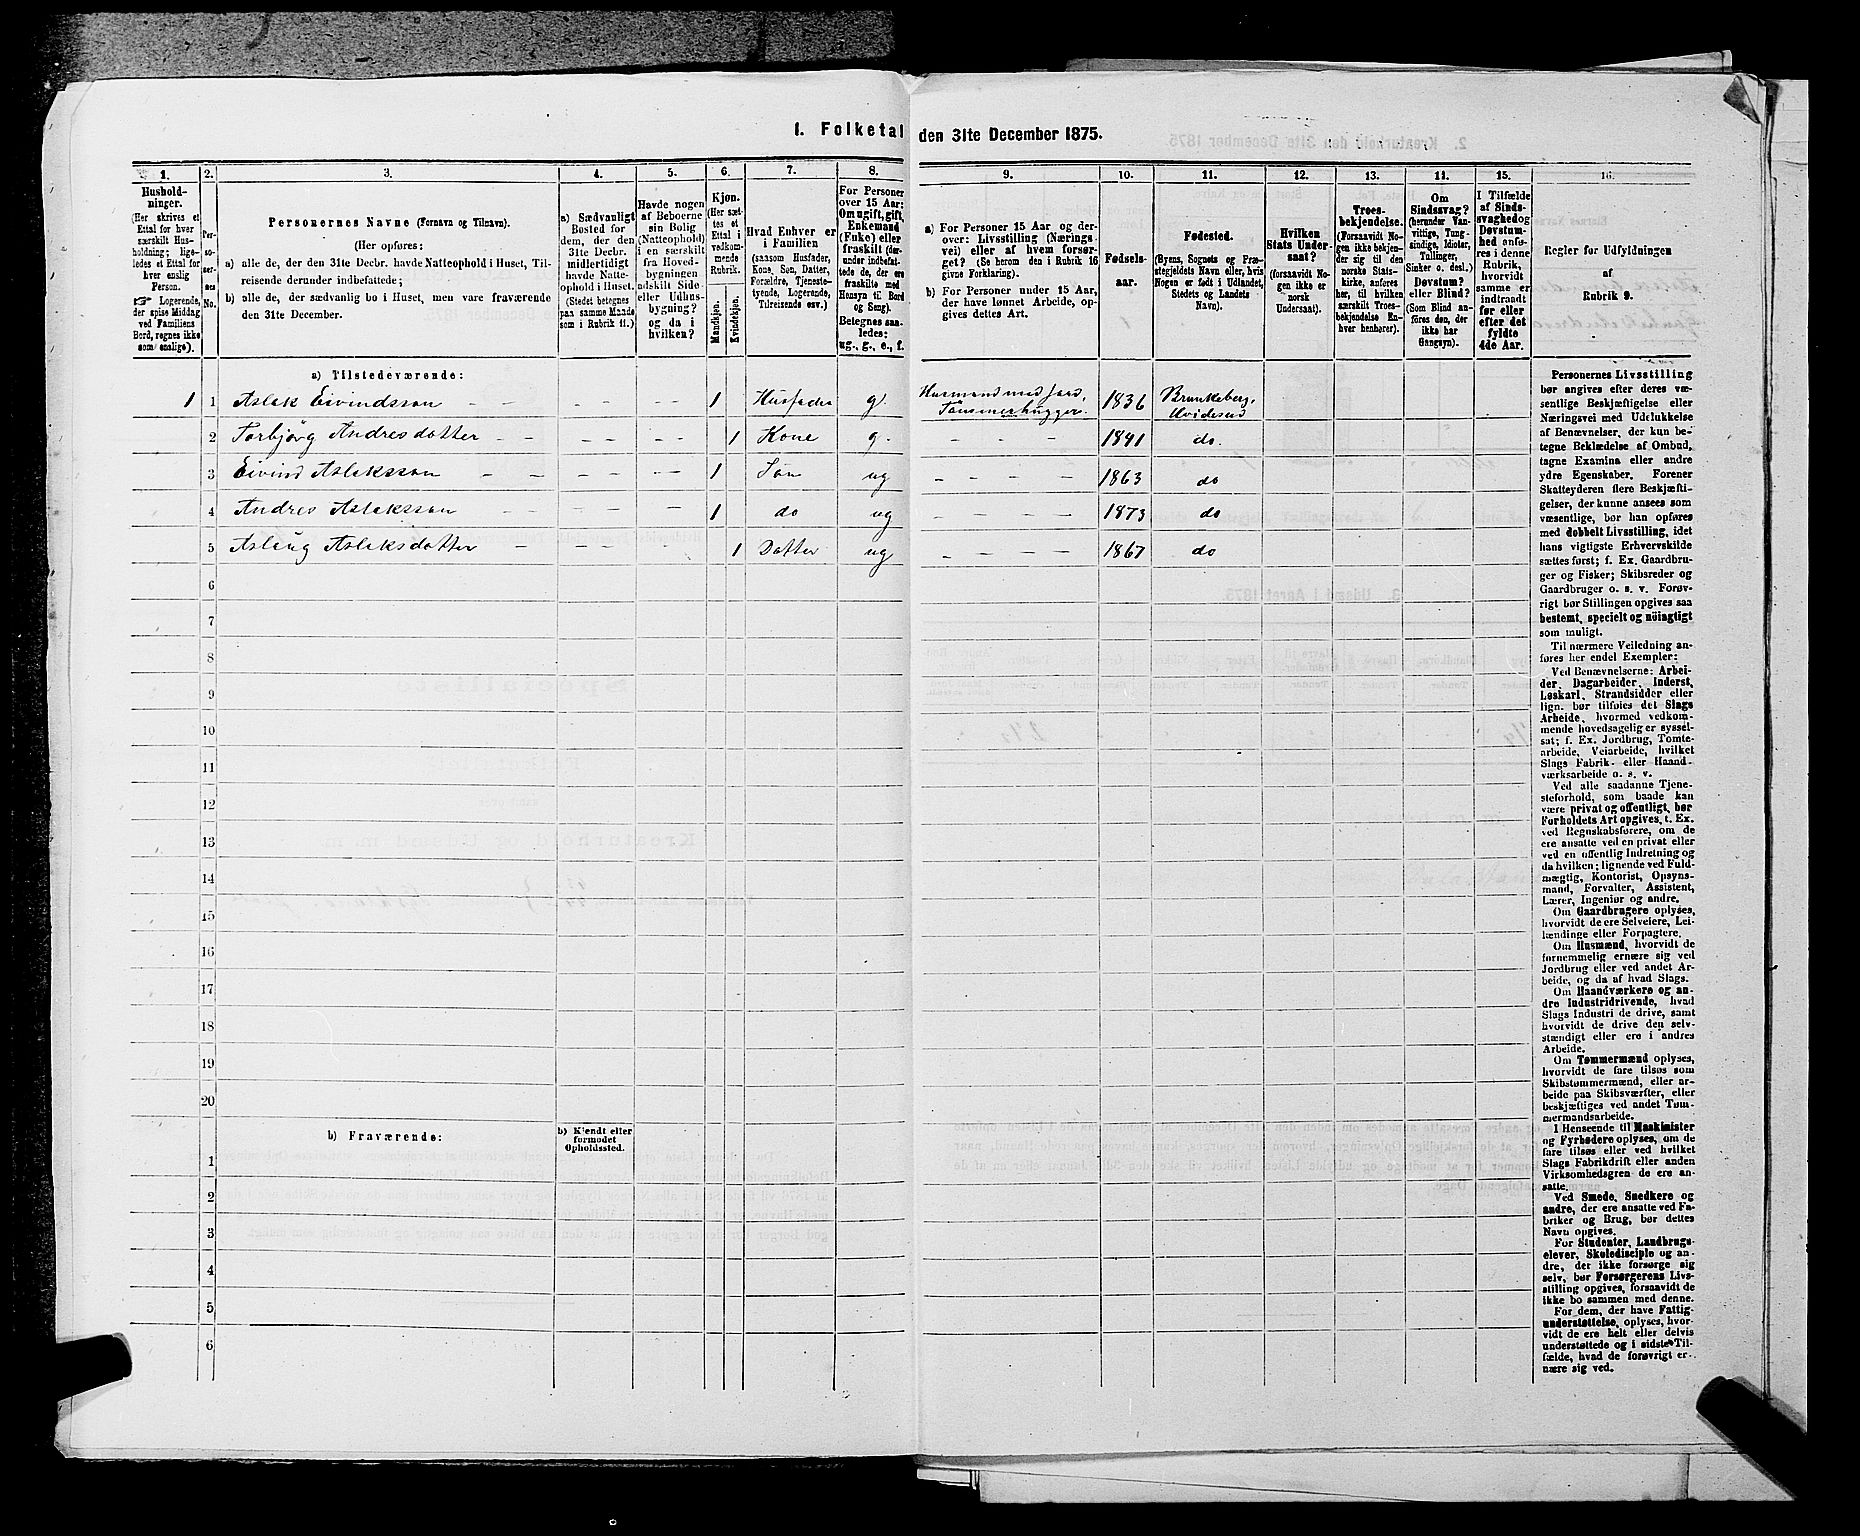 1. Folketal den 31te December 1875.
1.
Hushold-
ninger.
(Her skrives et
Ettal for hver
særskilt Hus-
holdning; lige-
ledes et Ettal for
hver enslig
Person.
☞ Logerende,
der spise Middag
ved Familiens
Bord, regnes ikke
som enslige).
2.
Per-
so-
ner-
nes
No.
3.
Personernes Navne (Fornavn og Tilnavn).
(Her opføres:
a) alle de, der den 31te Decbr. havde Natteophold i Huset, Til-
reisende derunder indbefattede;
b) alle de, der sædvanlig bo i Huset, men vare fraværende
den 31te December.
4.
a) Sædvanligt
Bosted for
dem, der den
31te Decbr.
midlertidigt
havde Natte-
ophold i Huset.
(Stedet betegnes
paa samme Maade
som i Rubrik 11.)
5.
Havde nogen
af Beboerne
sin Bolig
(Natteophold)
i en særskilt
fra Hoved-
bygningen
adskilt Side-
eller Udhus-
bygning?
og da i
hvilken?
6.
Kjøn.
(Her sæt-
tes et
Ettal i
vedkom-
mende
Rubrik.
Mandkjøn.
Kvindekjøn.
7.
Hvad Enhver er
i Familien
(saasom Husfader,
Kone, Søn, Datter,
Forældre, Tjeneste-
tyende, Logerende,
Tilreisende osv.)
8.
For Personer
over 15 Aar:
Om ugift, gift,
Enkemand
(Enke) eller
fraskilt (der-
under indbefat-
tede de, der ere
fraskilte med
Hensyn til Bord
og Seng).
Betegnes saa-
ledes:
ug., g., e., f.
9.
a) For Personer 15 Aar og der-
over: Livsstilling (Nærings-
vei) eller af hvem forsør-
get? (Se herom den i Rubrik 16
givne Forklaring).
b) For Personer under 15 Aar,
der have lønnet Arbeide, op-
gives dettes Art.
10.
Fødsels-
aar.
11.
Fødested.
(Byens, Sognets og Præ-
stegjeldets Navn eller, hvis
Nogen er født i Udlandet,
Stedets og Landets
Navn).
12.
Hvilken
Stats Under-
saat?
(forsaavidt No-
gen ikke er
norsk
Undersaat).
13.
Troes-
bekjendelse.
(Forsaavidt No-
gen ikke bekjen-
der sig til den
norske Stats-
kirke, anføres
her, til hvilken
særskilt Troes-
bekjendelse En-
hver henhører).
14.
Om
Sindssvag?
(herunder Van-
vittige, Tung-
sindige, Idioter,
Tullinger,
Sinker o. desl.)
Døvstum?
eller Blind?
(Som Blind an-
føres den, der
ikke har
Gangsyn).
15.
I Tilfælde
af Sinds-
svaghed og
Døvstum-
hed anfø-
res i denne
Rubrik,
hvorvidt
samme er
indtraadt
før eller
efter det
fyldte
4de Aar.
16.
Regler for Udfyldningen
af
Rubrik 9.
a) Tilstedeværende:
1 1 Aslak Eivindssøn – – – – 1 Husfader g. Husmand med Jord, Tømmerhugger. 1836 Brunkeberg, Hvidesed
2 Torbjørg Andresdatter – – – – – 1 Kone g. – – – 1841 do.
3 Eivind Aslakssøn – – – – – 1 Søn ug – – – – 1863 do
4 Andres Aslakssøn – – – – – 1 do ug – – – – 1873 do
5 Aslaug Aslaksdatter – – – – – 1 Datter ug – – – – 1867 do
6
7
8
9
10
11
12
13
14
15
16
17
18
19
20
b) Fraværende:
b) Kjendt eller
formodet
Opholdssted.
1
2
3
4
5
6
Personernes Livsstilling
bør angives efter deres væ-
sentlige Beskjæftigelse eller
Næringsvei med Udelukkelse
af Benævnelser, der kun be-
tegne Beklædelse af Ombud,
tagne Examina eller andre
ydre Egenskaber. Forener
Skatteyderen flere Beskjæfti-
gelser, der kunne ansees som
væsentlige, bør han opføres
med dobbelt Livsstilling, idet
hans vigtigste Erhvervskilde
sættes først; f. Ex. Gaardbru-
ger og Fisker; Skibsreder og
Gaardbruger o. s. v. Forøv-
rigt bør Stillingen opgives saa
bestemt, specielt og nöiagtigt
som muligt.
Til nærmere Veiledning an-
føres her endel Exempler:
Ved Benævnelserne: Arbei-
der, Dagarbeider, Inderst,
Løskarl, Strandsidder eller
lign. bør tilføies det Slags
Arbeide, hvormed vedkom-
mende hovedsagelig er syssel-
sat; f. Ex. Jordbrug, Tomte-
arbeide, Veiarbeide, hvilket
Slags Fabrik- eller Haand-
værksarbeide o. s. v.
Ved alle saadanne Tjene-
steforhold, som baade kan
være privat og offentligt, bør
Forholdets Art opgives, t. Ex.
ved Regnskabsførere, om de
ere ansatte ved en privat eller
ved en offentlig Indretning og
da hvilken; lignende ved Fuld-
mægtig, Kontorist, Opsyns-
mand, Forvalter, Assistent,
Lærer, Ingeniør og andre.
Om Gaardbrugere oplyses,
hvorvidt de ere Selveiere, Lei-
lændinge eller Forpagtere.
Om Husmænd, hvorvidt de
fornemmelig ernære sig ved
Jordbrug eller ved andet Ar-
beide, og da af hvad Slags.
Om Haandværkere og an-
dre Industridrivende, hvad
Slags Industri de drive, samt
hvorvidt de drive den selv-
stændigt eller ere i andres
Arbeide.
Om Tømmermænd oplyses,
hvorvidt de fare tilsøs som
Skibstømmermænd, eller ar-
beide paa Skibsværfter, eller
beskjæftiges ved andet Tøm-
mermandsarbeide.
I Henseende til Maskinister
og Fyrbødere oplyses, om de
fare tilsøs eller ved hvilket
Slags Fabrikdrift eller anden
Virksomhedsgren de ere an-
satte.
Ved Smede, Snedkere og
andre, der ere ansatte ved Fa-
briker og Brug, bør dettes
Navn opgives.
For Studenter, Landbrugs-
elever, Skoledisciple og an-
dre, der ikke forsørge sig
selv, bør Forsørgerens Livs-
stilling opgives, forsaavidt de
ikke bo sammen med denne.
For dem, der have Fattig-
understøttelse, oplyses, hvor-
vidt de ere helt eller delvis
understøttede og i sidste Til-
fælde, hvad de forøvrigt er-
nære sig ved.